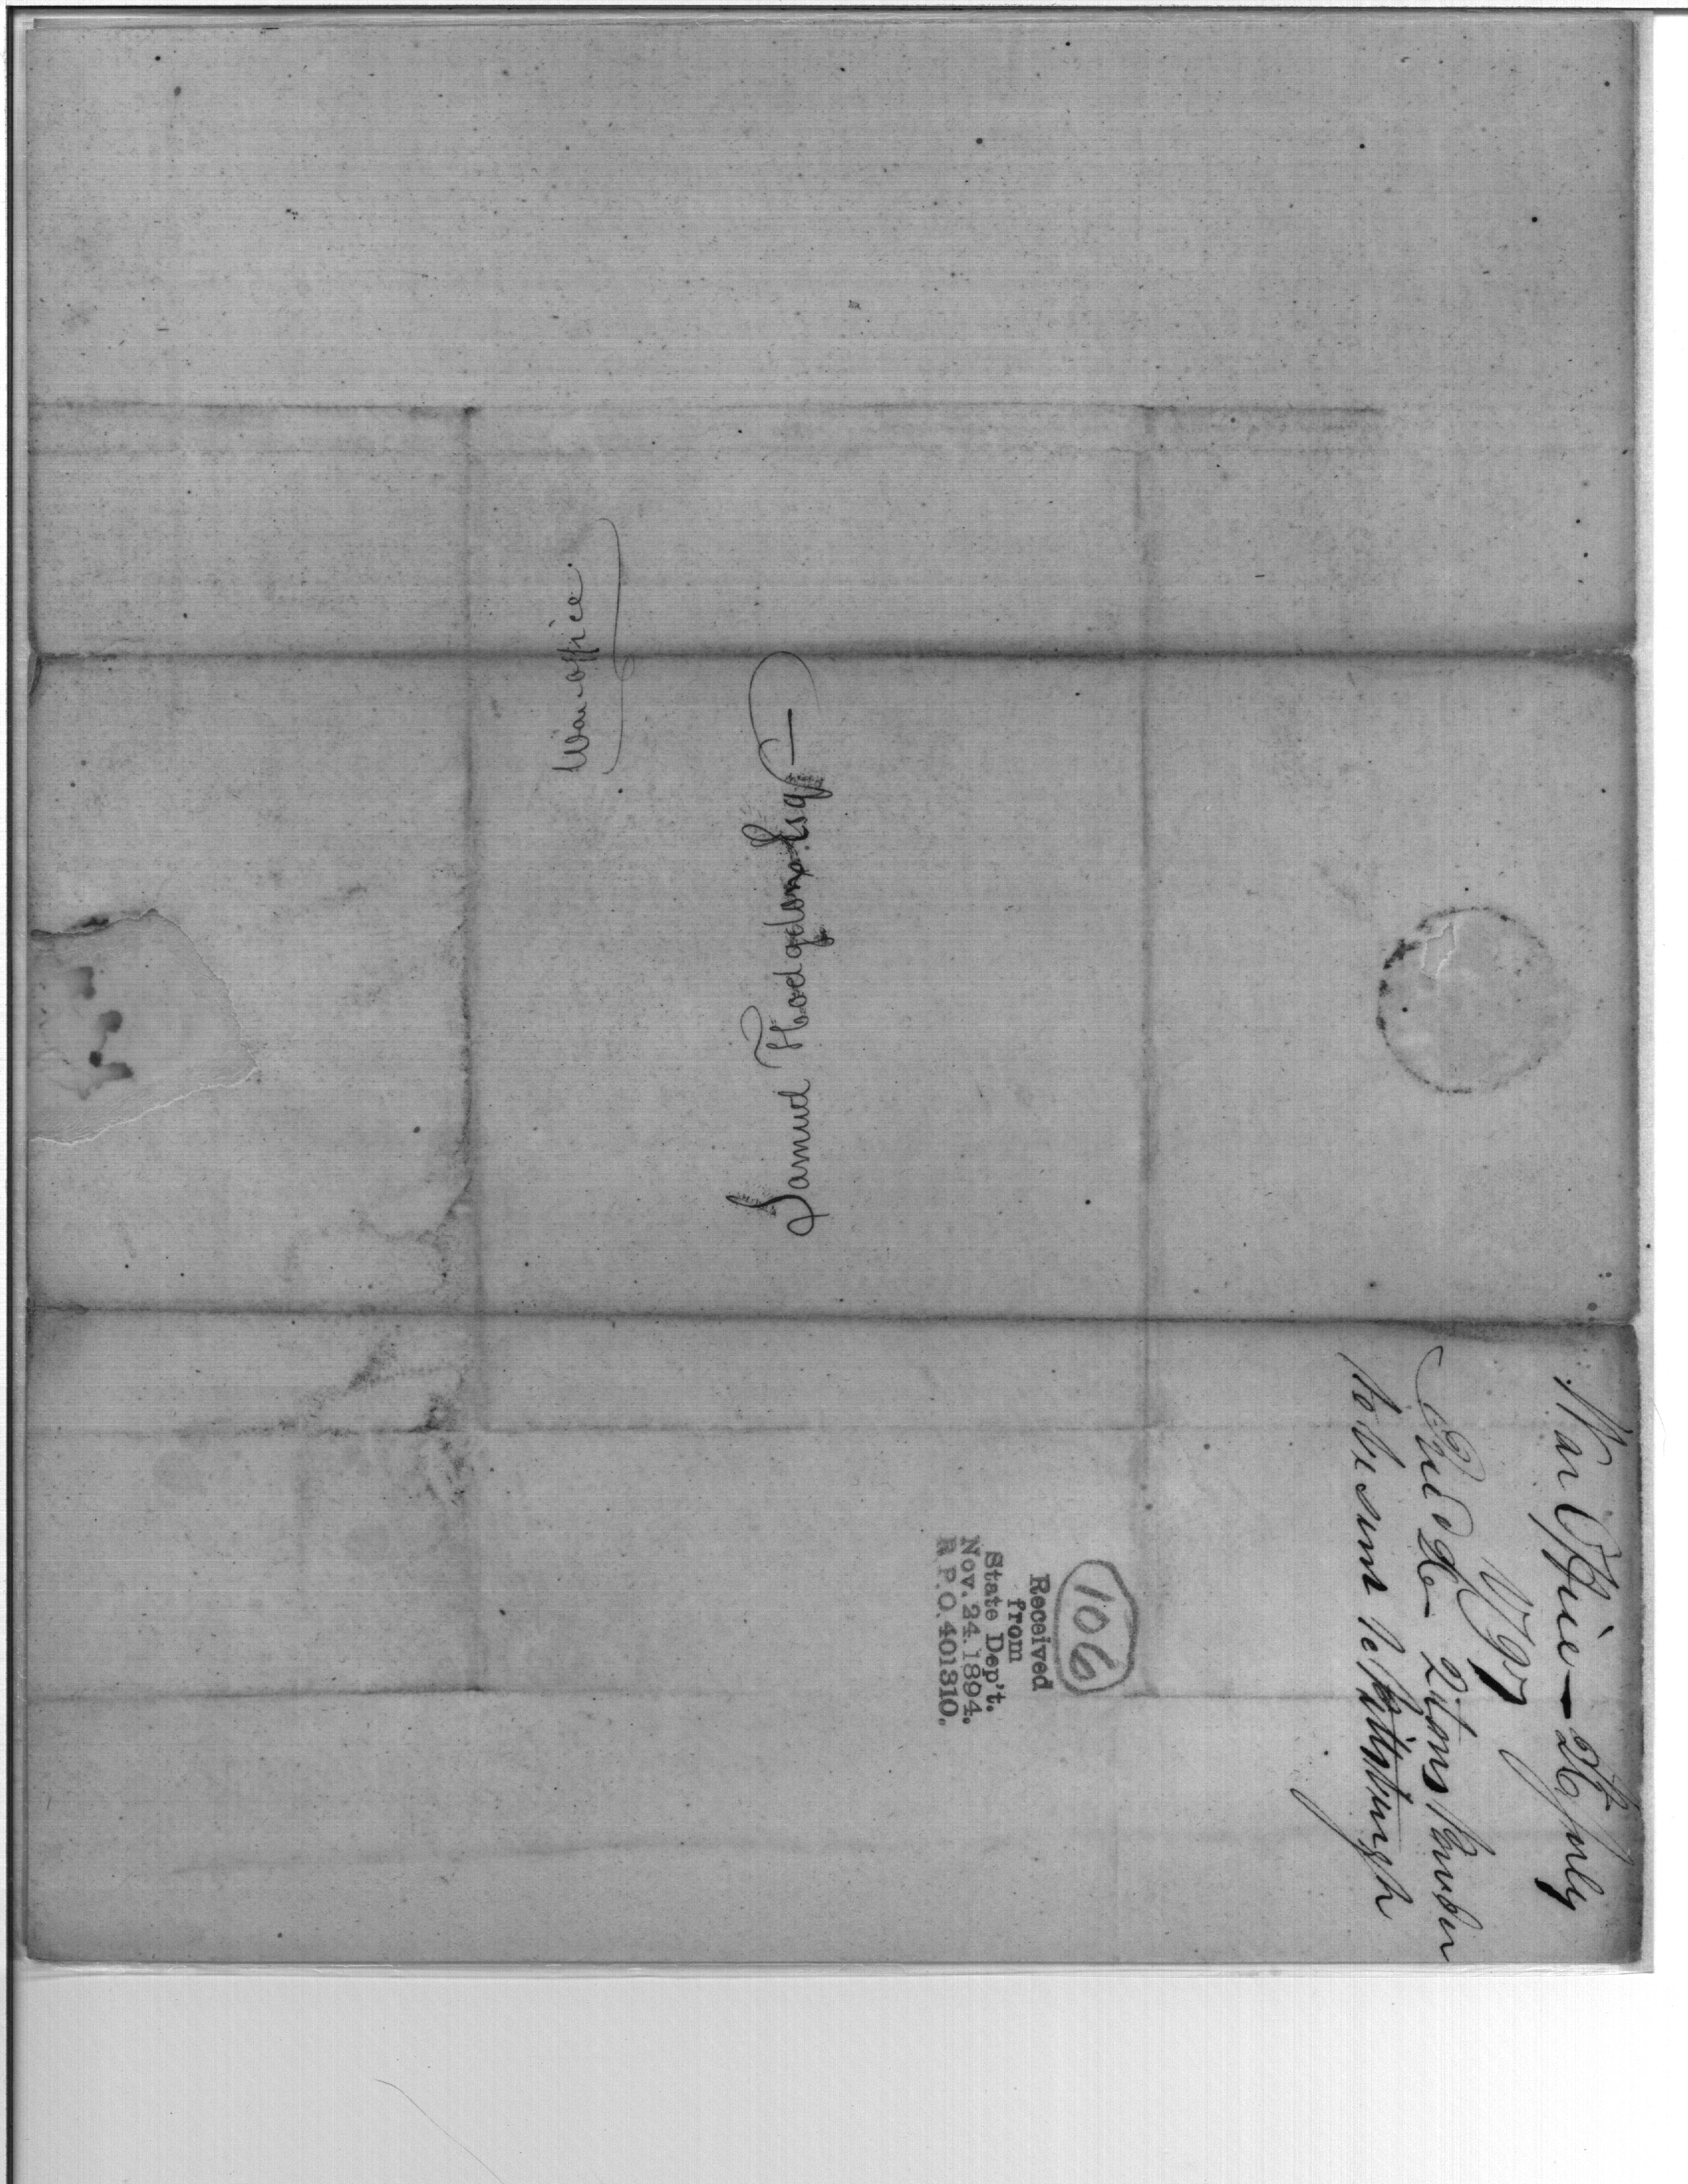 War office
Samuel Hodgdon Esqr
War Office — 26 July
1797
2 tons Powder
to be sent to Pittsburgh
106
Received
from
State Dep't.
Nov. 24. 1894.
R. P. O. 401310.